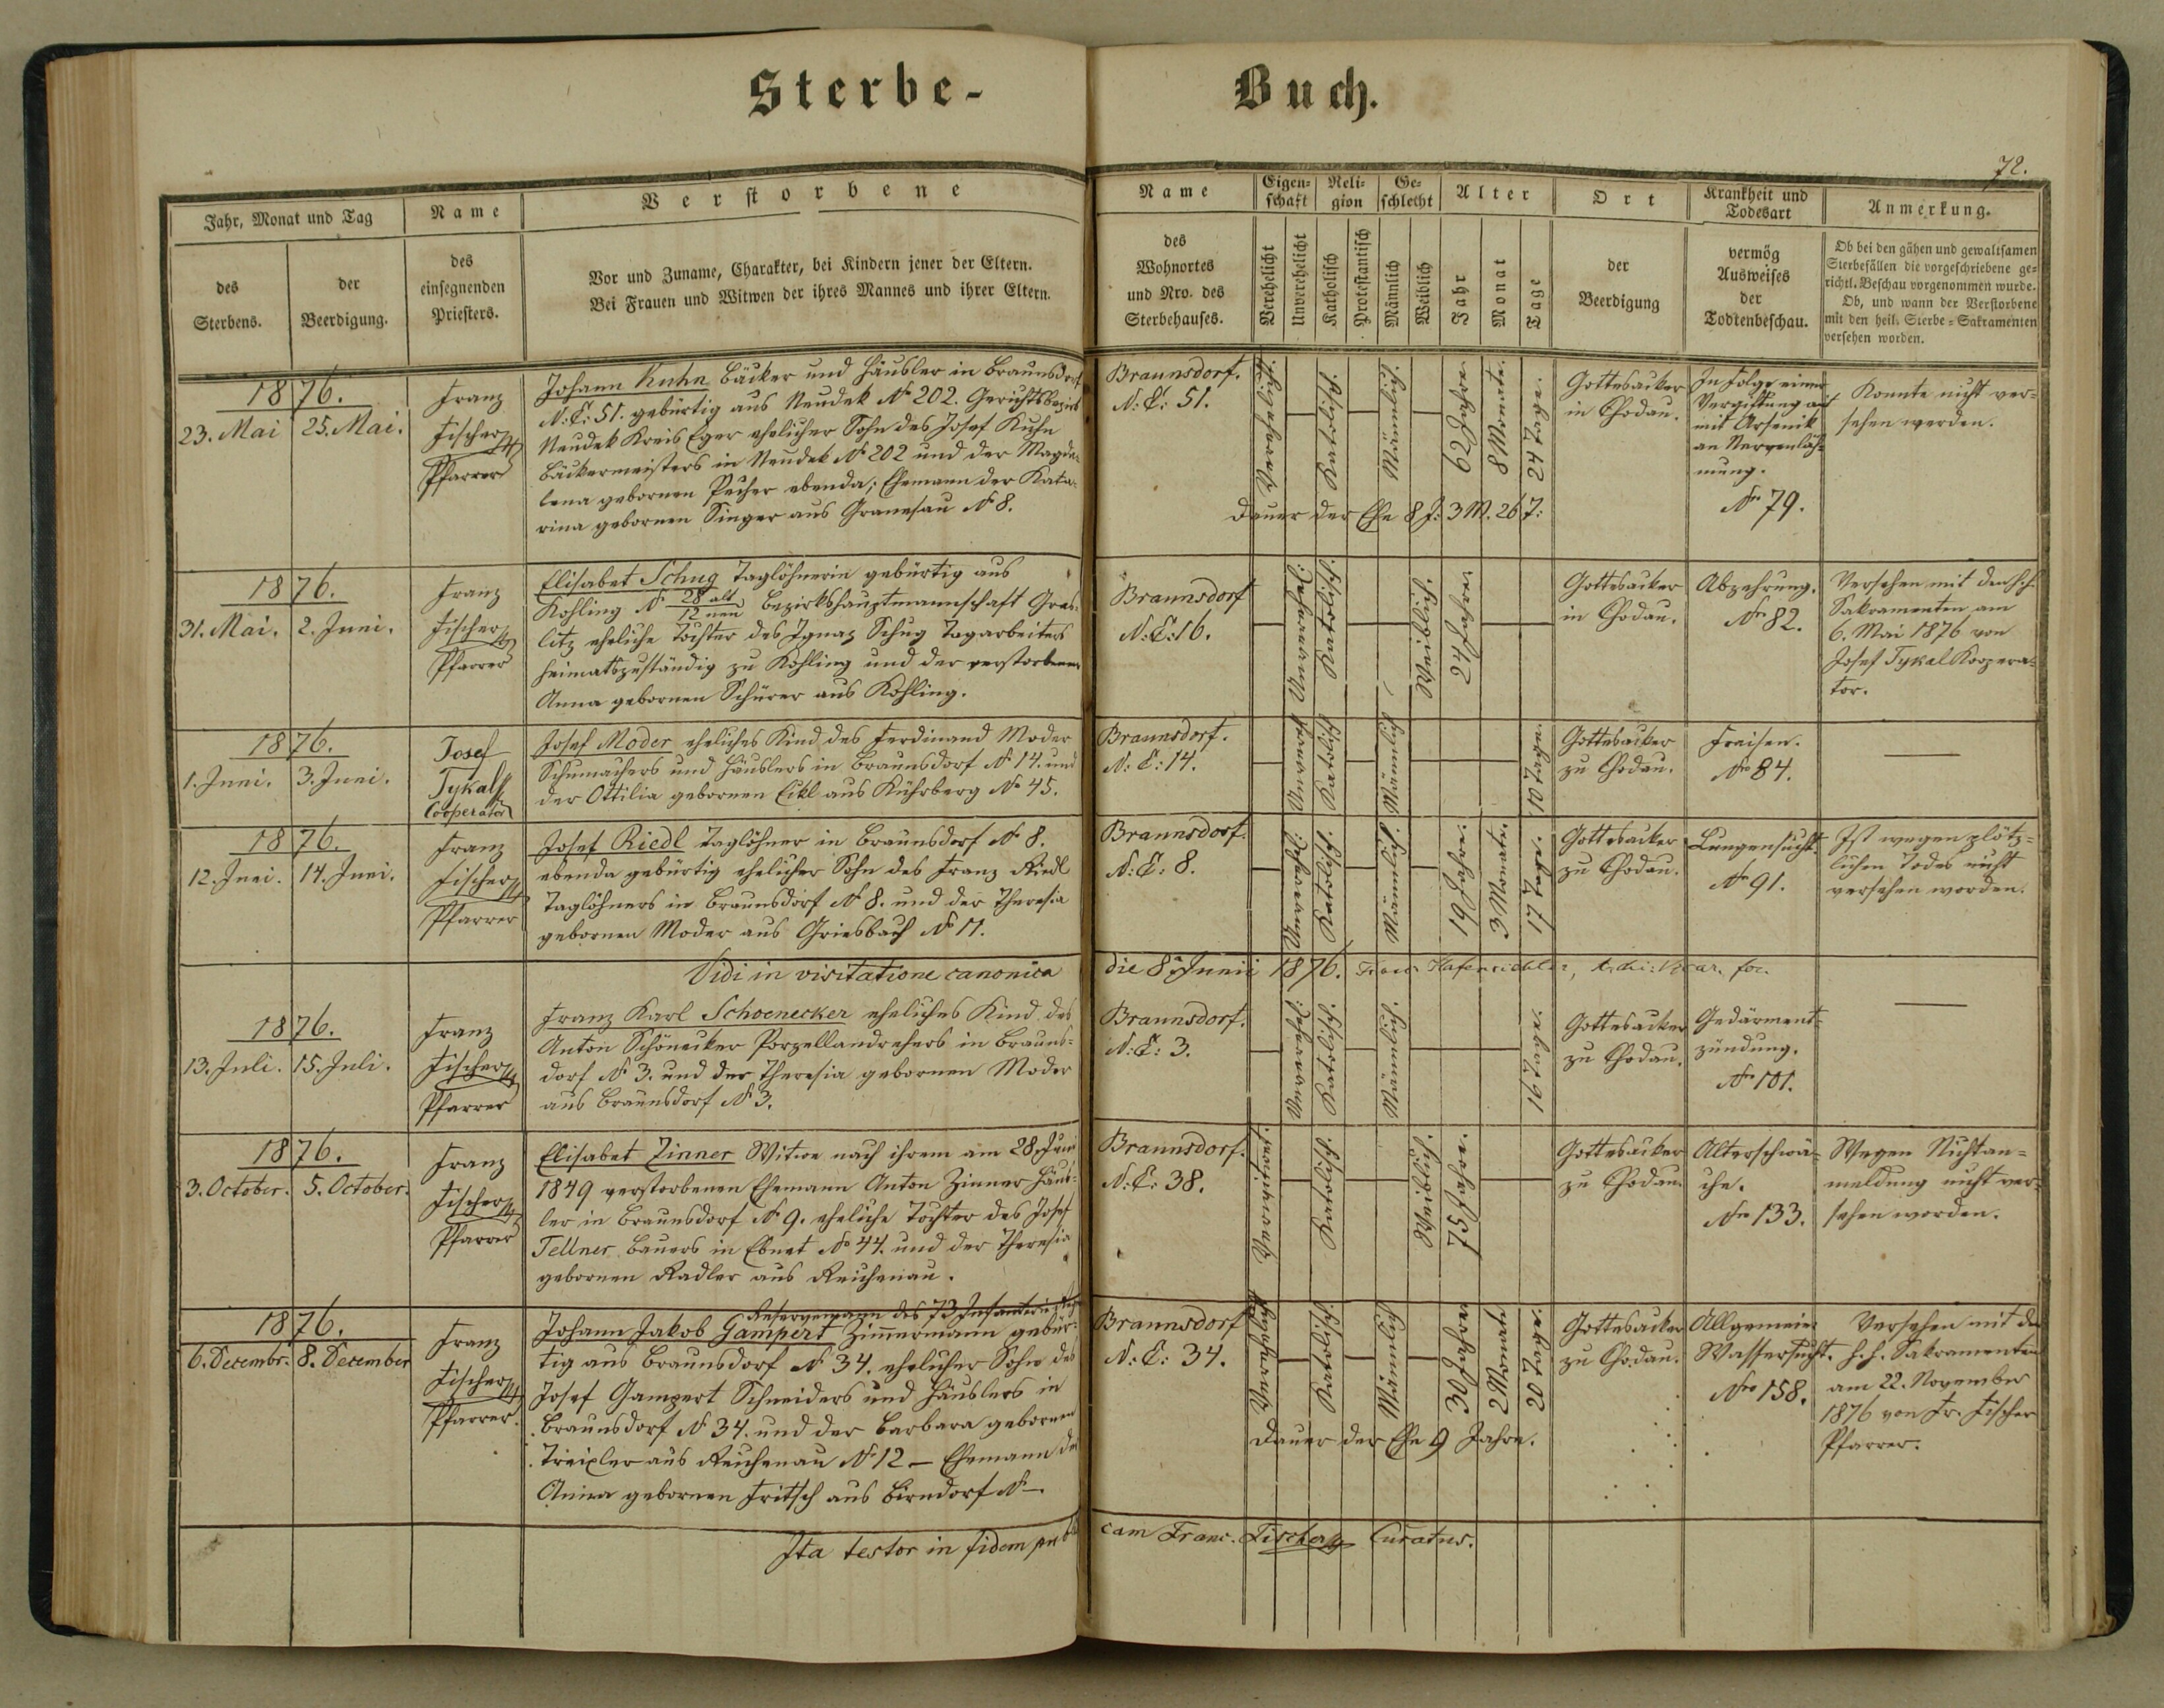 Sterbe-Buch.
72.
Jahr, Monat und Tag
des Sterbens.
der Beerdigung.
Name
des
einsegnenden
Priesters.
Verstorbene
Vor und Zuname, Charakter, bei Kindern jener der Eltern.
Bei Frauen und Witwen der ihres Mannes und ihrer Eltern.
Name
des
Wohnortes
und Nro. des
Sterbehauses.
Eigenschaft
Verehelicht
Unverehelicht
Religion
Katholisch
Protestantisch
Geschlecht
Männlich
Weiblich
Alter
Jahr
Monat
Tage
Ort
der
Beerdigung
Krankheit und
Todesart
vermög
Ausweises
der
Todtenbeschau.
Anmerkung.
Ob bei den gähen und gewaltsamen
Sterbefällen die vorgeschriebene ge-
richtl. Beschau vorgenommen wurde.
Ob, und wann der Verstorbene
mit den heil. Sterbe-Sakramenten
versehen worden.
1876.
23. Mai
25. Mai.
Franz
Fischer
Pfarrer
Johann Kuhn Bäcker und Häusler in Braunsdorf
N. C. 51. gebürtig aus Neudek No 202. Gerichtsbezirk
Neudek Kreis Eger ehelicher Sohn des Josef Kuhn
Bäckermeisters in Neudek No 202 und der Magda-
lena gebornen Pecher ebenda; Ehemann der Kata-
rina gebornen Singer aus Granesau No 8.
Braunsdorf.
N: C: 51.
Verehelicht.
Katolisch.
Männlich.
62 Jahre.
8 Monate.
24 Tage.
Dauer der Ehe 8 J: 3 M. 26 T:
Gottesacker
in Chodau.
In Folge einer
Vergiftung
mit Arsenik
an Nervenläh-
mung.
No 79.
Konnte nicht ver-
sehen werden.
1876.
31. Mai.
2. Juni.
Franz
Fischer
Pfarrer
Elisabet Schug Taglöhnerin gebürtig aus
Kohling No 28 alt 12 neu Bezirkshauptmannschaft Gras-
litz eheliche Tochter des Ignaz Schug Tagarbeiters
heimatszuständig zu Kohling und der verstorbenen
Anna gebornen Schürer aus Kohling.
Braunsdorf
N: C: 16.
Unverehel:
Katolisch.
Weiblich.
24 Jahre
Gottesacker
in Chodau.
Abzehrung.
No 82.
Versehen mit den h. h.
Sakramenten am
6. Mai 1876 von
Josef Tykal Koopera-
tor.
1876.
1. Juni.
3. Juni.
Josef
Tykal
Cooperator
Josef Moder eheliches Kind des Ferdinand Moder
Schumachers und Häuslers in Braunsdorf No 14. und
der Ottilia gebornen Eikl aus Kührberg No 45.
Braunsdorf.
N: C: 14.
Katolisch
Männlich
10 Tage.
Gottesacker
zu Chodau.
Fraisen.
No 84.
1876.
12. Juni.
14. Juni.
Franz
Fischer
Pfarrer
Josef Riedl Taglöhner in Braunsdorf No 8.
ebenda gebürtig ehelicher Sohn des Franz Riedl
Taglöhners in Braunsdorf No 8. und der Theresia
gebornen Moder aus Griesbach No 17.
Braunsdorf.
N: C: 8.
Katolisch.
Männlich.
19 Jahre.
3 Monate.
17 Tage.
Gottesacker
zu Chodau.
Lungensucht.
No 91.
Ist wegen plötz-
lichen Todes nicht
versehen worden.
Vidi in visitatione canonica die 8 Junii 1876.
1876.
13. Juli.
15. Juli.
Franz
Fischer
Pfarrer
Franz Karl Schoenecker eheliches Kind des
Anton Schönecker Porzellandrehers in Brauns-
dorf No 3. und der Theresia gebornen Moder
aus Braunsdorf No 3.
Braunsdorf.
N: C: 3.
Unverehel:
Katolisch.
Männlich.
16 Tage.
Gottesacker
zu Chodau.
Gedärment-
zündung.
No 101.
1876.
3. October.
5. October.
Franz
Fischer
Pfarrer
Elisabet Zinner Witwe nach ihrem am 28. Juni
1849 verstorbenen Ehemann Anton Zinner Häus-
ler in Braunsdorf No 9. eheliche Tochter des Josef
Tellner Bauers in Ebnet No 44. und der Theresia
gebornen Radler aus Reichenau.
Braunsdorf.
N: C: 38.
Katolisch.
Weiblich.
75 Jahre.
Gottesacker
zu Chodau.
Alterschwä-
che.
No 133.
Wegen Nichtan-
meldung nicht ver-
sehen worden.
1876.
6. Decembr.
8. December
Franz
Fischer
Pfarrer.
Reservemann des 73 Infanterie
Johann Jakob Gampert Zimmermann gebür-
tig aus Braunsdorf No 34. ehelicher Sohn des
Josef Gampert Schneiders und Häuslers in
Braunsdorf No 34. und der Barbara gebornen
Treixler aus Reichenau No 12 – Ehemann der
Anna gebornen Fritsch aus Birndorf No –.
Braunsdorf
N: C: 34.
Verehelicht
Katolisch.
Männlich
30 Jahre
2 Monate
20 Tage.
Dauer der Ehe 9 Jahre.
Gottesacker
zu Chodau.
Allgemeine
Wassersucht.
No 158.
Versehen mit den
h. h. Sakramenten
am 22. November
1876 von Fr. Fischer
Pfarrer.
Ita testor in fidem publicam Franc. Fischer Curatus.